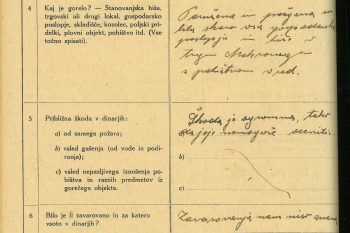 4 Kaj je gorelo? — Stanovanjska hiša,
trgovski ali drugi lokal, gospodarsko
poslopje, skladišče, kozolec, poljski pri-
delki, plovni objekt, pohištvo itd. (Vse
točno opisati).
Porušena in požgana so
bila skoro vsa gospodarska
poslopja in hiše v
trgu Mokronog
s pohištvom vred.
5 Približna škoda v dinarjih:
a) od samega požara;
b) vsled gašenja (od vode in podi-
ranja);
c) vsled nepazljivega iznošenja po-
hištva in raznih predmetov iz
gorečega objekta.
Škoda je ogromna, tako
da jo je nemogoče oceniti.
b)
c)
6 Bilo je li zavarovano in za katero
vsoto v dinarjih?
Zavarovanja nam niso znana